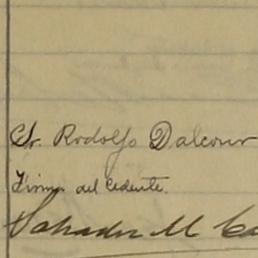 Sr. Rodolfo Dalcour
Firma del Cedente.
Salvador M Ca